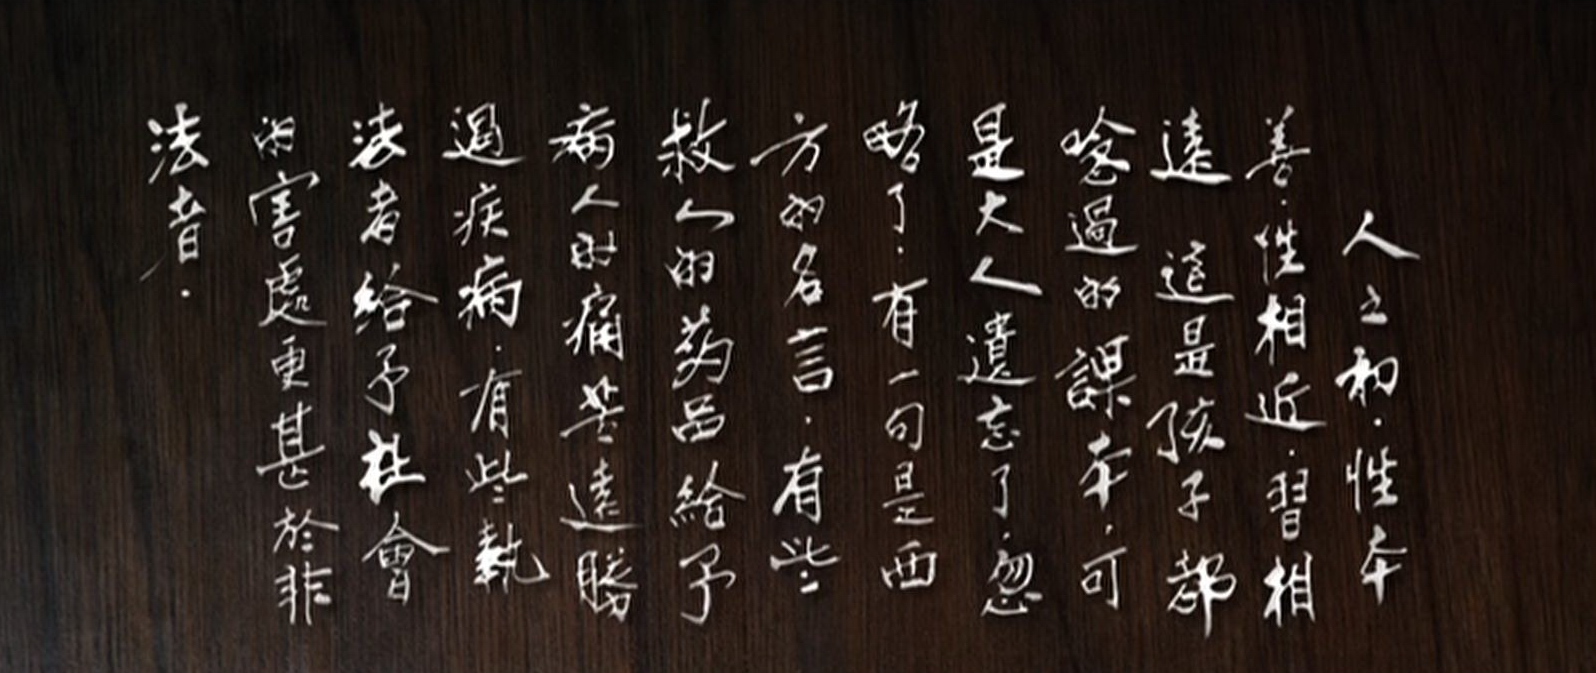 人之初．性本
善．性相近．習相
遠　這是孩子都
唸過的課本．可
是大人遺忘了．忽
略了．有一句是西
方的名言．有些
救人的药品給予
病人的痛苦遠勝
過疾病．有些執
法者給予社會
的害處更甚於非
法者．